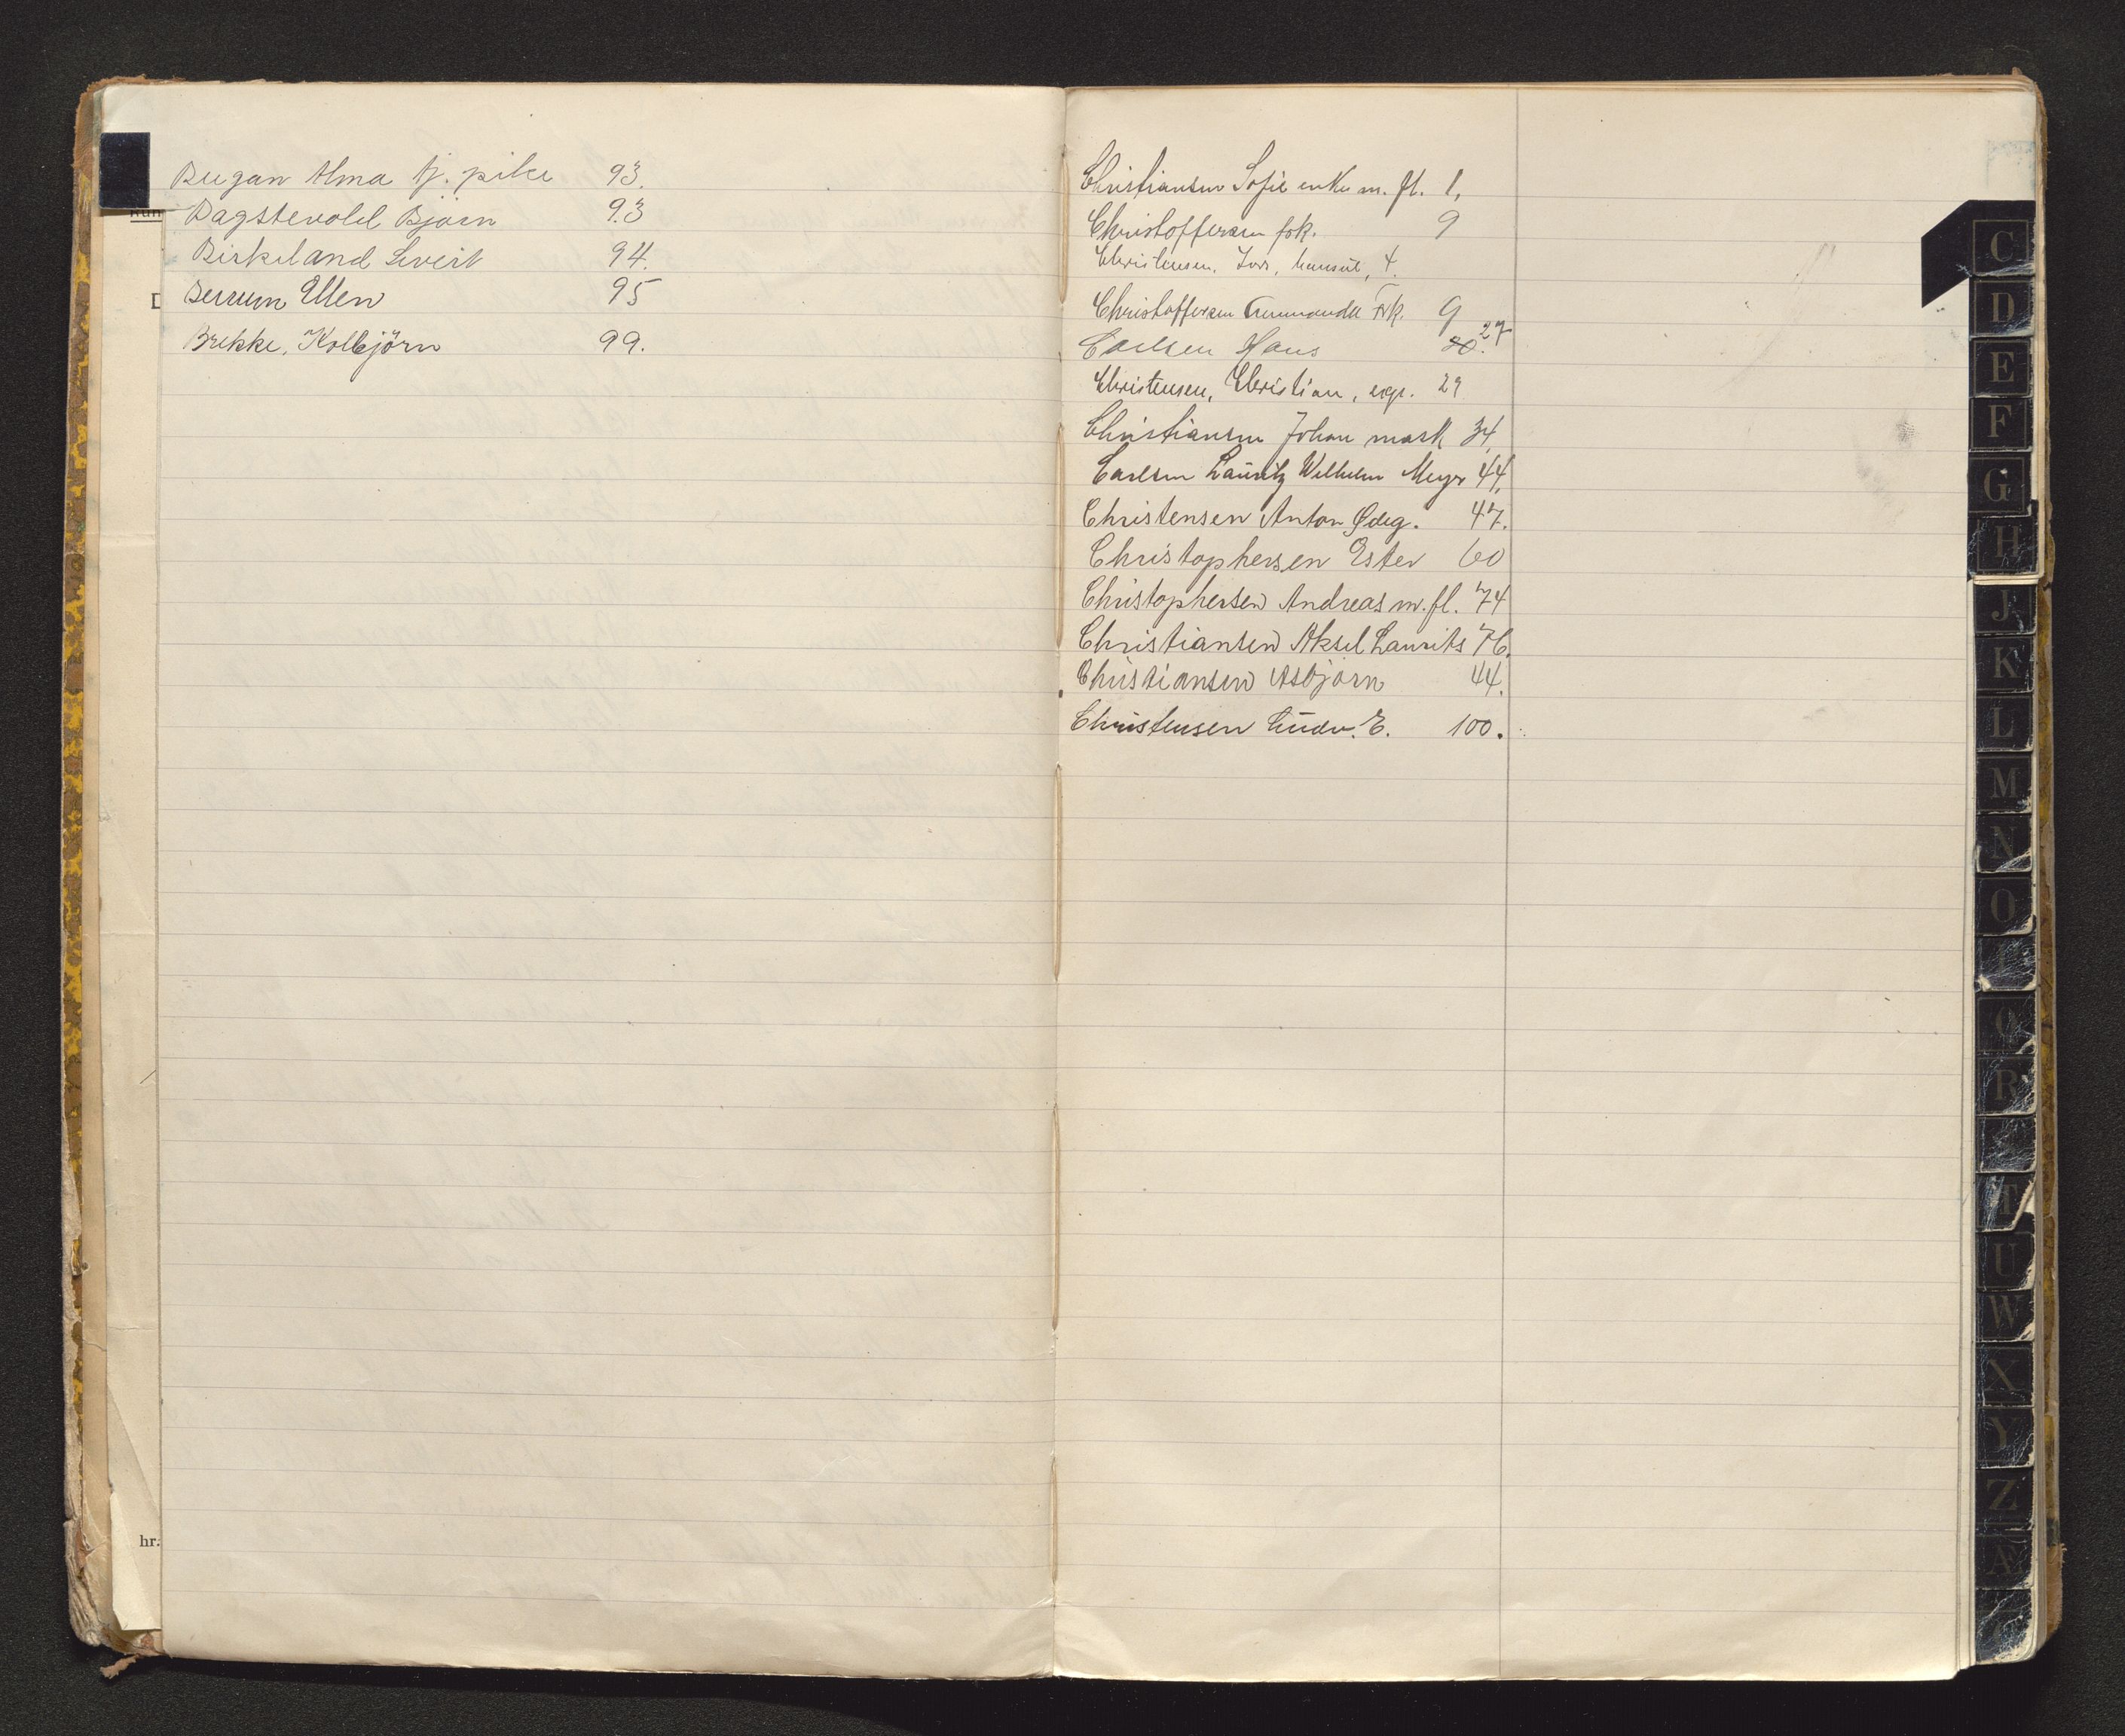 Bugan Alma tj. pike 93.
Bagstevold Bjørn 93
Birkeland Sivert 94.
Berrum Ellen 95
Brekke, Kolbjörn 99.
hr.
Christiansen Sofie enke m. fl. 1,
Christoffersen frk. 9
Christensen, Ivar, konsul, 4.
Christoffersen Ammanda Frk. 9
Carlsen Hans 20. 27
Christensen, Christian, exp. 29
Christiansen Johan mask 34,
Carlsen Lauritz Wilhelm Meyer 44,
Christensen Anton Ødeg. 47.
Christophersen Ester 60
Christophersen Andreas m. fl. 74
Christiansen Aksel Laurits 76.
Christiansen Asbjørn 44.
Christensen Ludv. E. 100.
C
D
E
F
G
H
J
K
L
M
N
O
Q
R
T
U
W
X
Y
Z
Æ